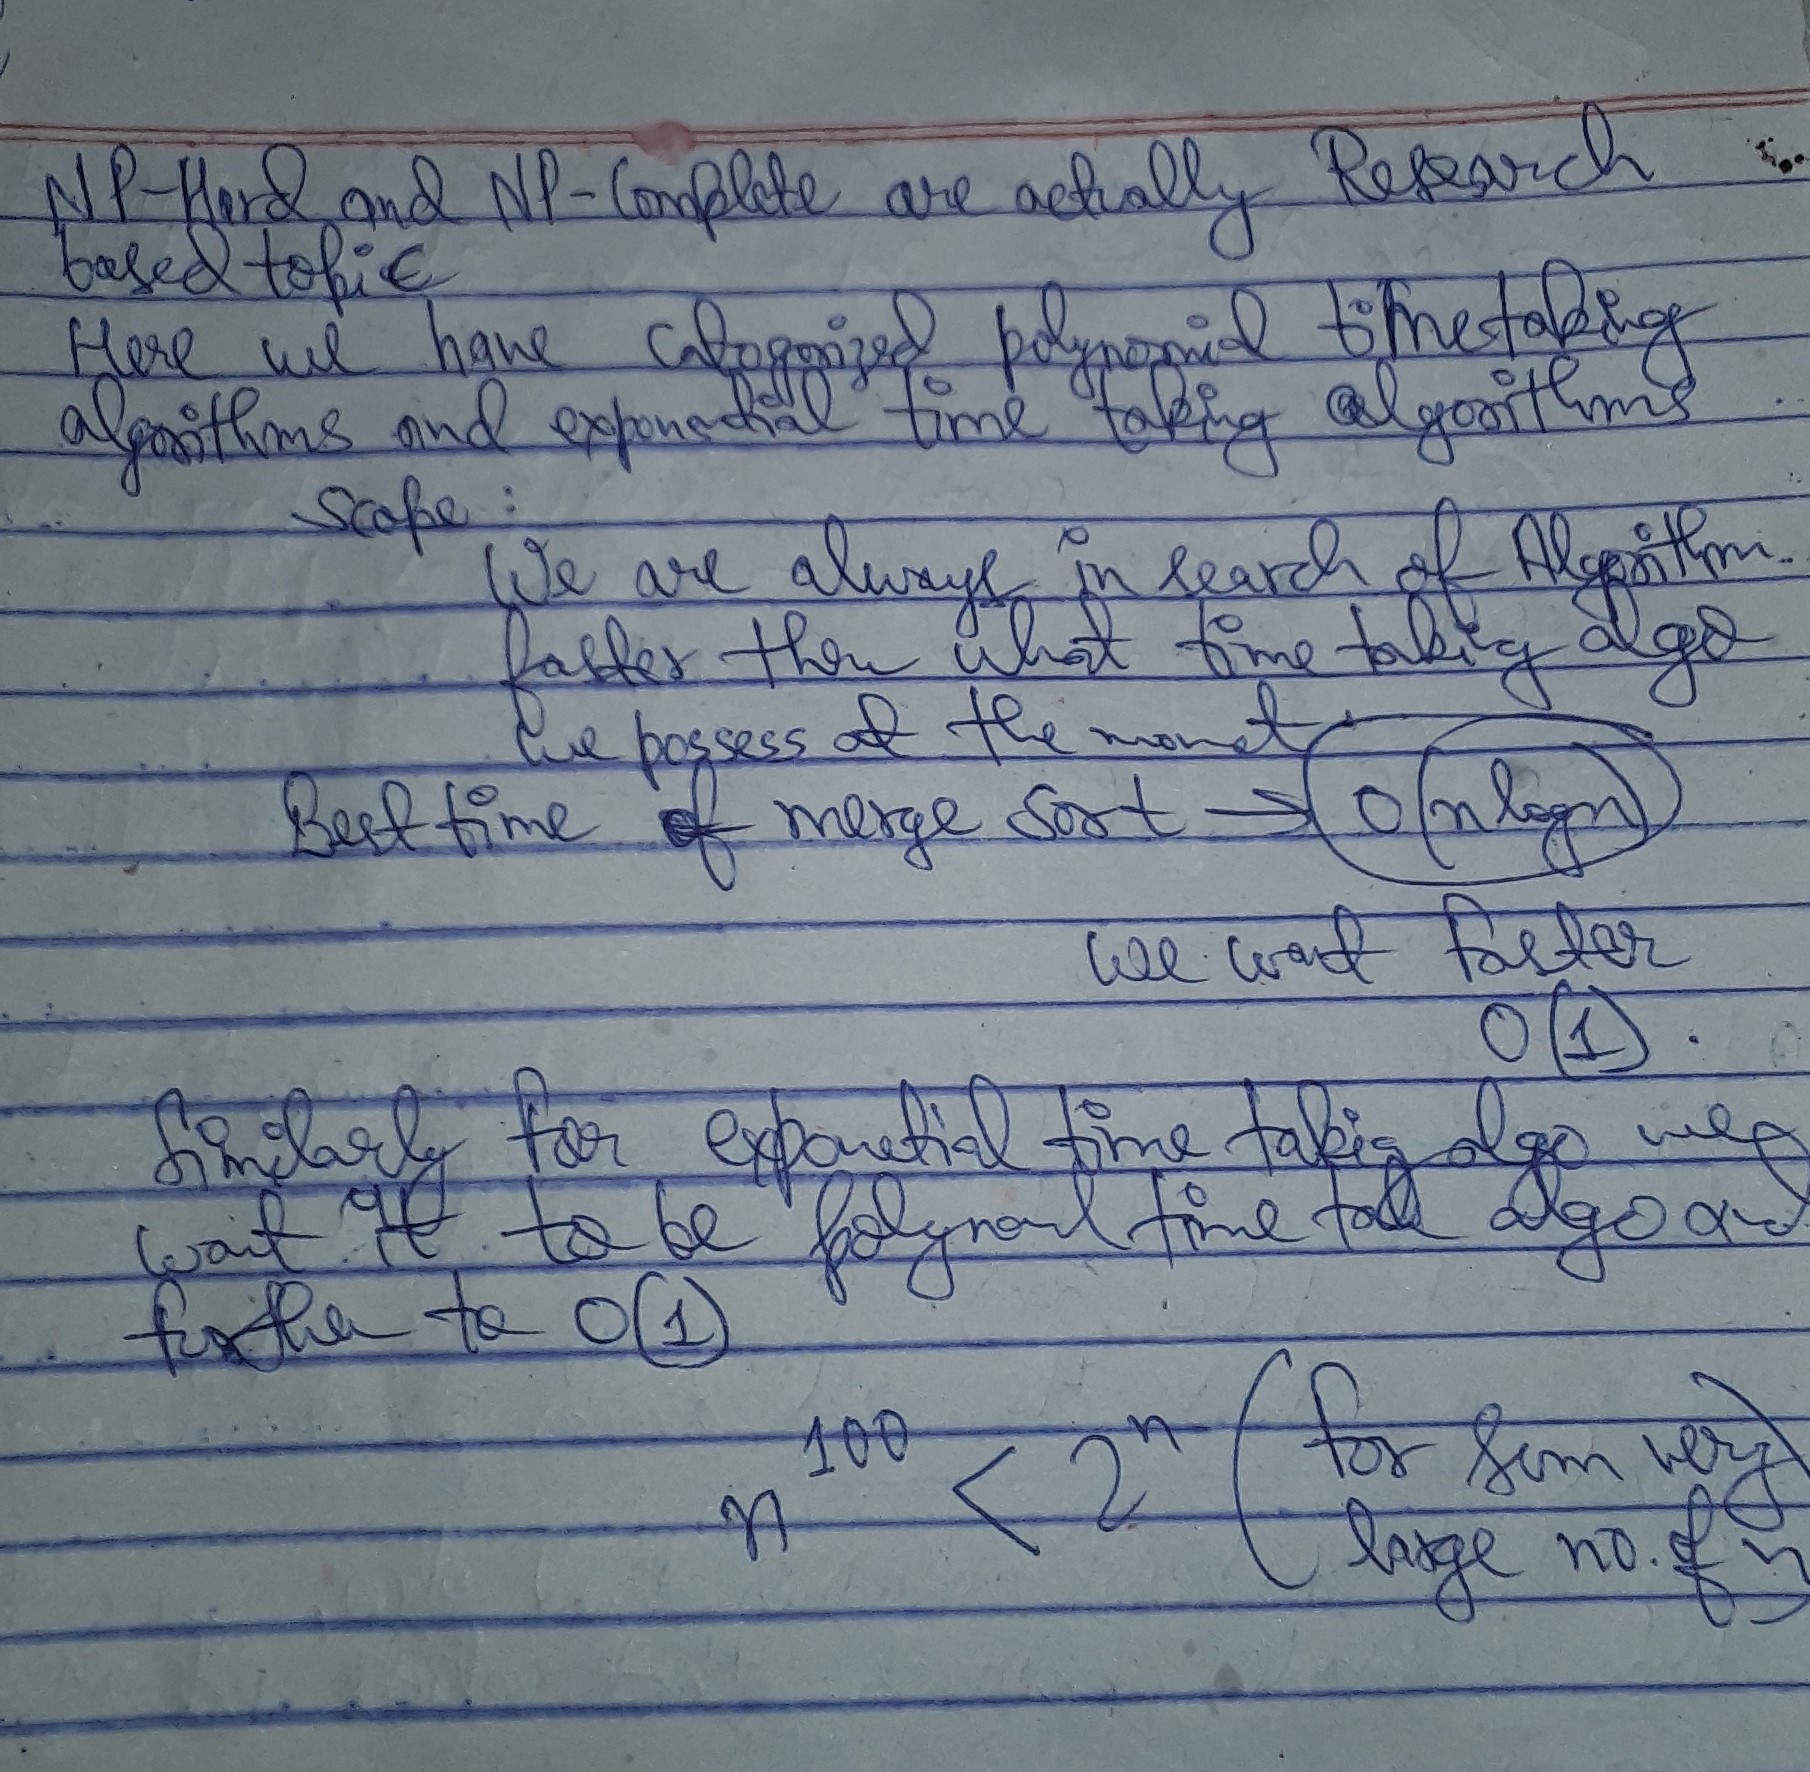 NP-Hard and NP-Complete are actually Research
based topic
Here we have catogorized polynomial time taking
algorithms and exponential time taking algorithms
Scope :
We are always in search of Algorithm
faster then what time taking algo
we possess at the momet
Best time of merge sort → O(n logn)
we want faster
O(1).
Similarly for exponetial time takig algo we
want it to be polynoml time tak algo and
further to O(1)
n^100 < 2^n (for som very
large no. of n)